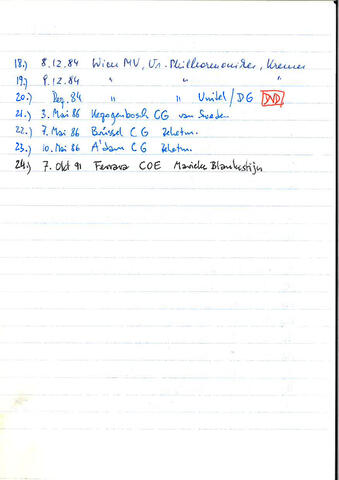 18.) 8.12.84 Wien MV, Wr. Philharmoniker, Kremer
19.) 9.12.84 " " "
20.) Dez. 84 " " Unitel / DG DVD
21.) 3. Mai 86 Hegogenbosch CG van Sweden
22.) 7. Mai 86 Brüssel CG
23.) 10. Mai 86 A'dam CG
24.) 7. Okt 91 Ferrara COE Marieke Blankestijn